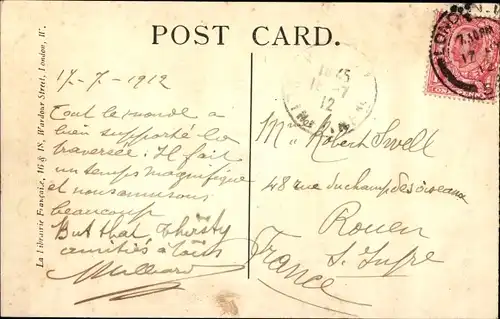 POST CARD.
La Librairie Française, 16 & 18, Wardour Street, London, W.
17-7-1912
Tout le monde a
bien supporté la
traversée. Il fait
un temps magnifique
et nous amusons
beaucoup
But that thirsty
amitiés à tous
LONDON. W.
7.10 PM
17
ONE PENNY
1945
18-7
12
Robert Swell
48 rue du champ des oiseaux
Rouen
S. Infre
France